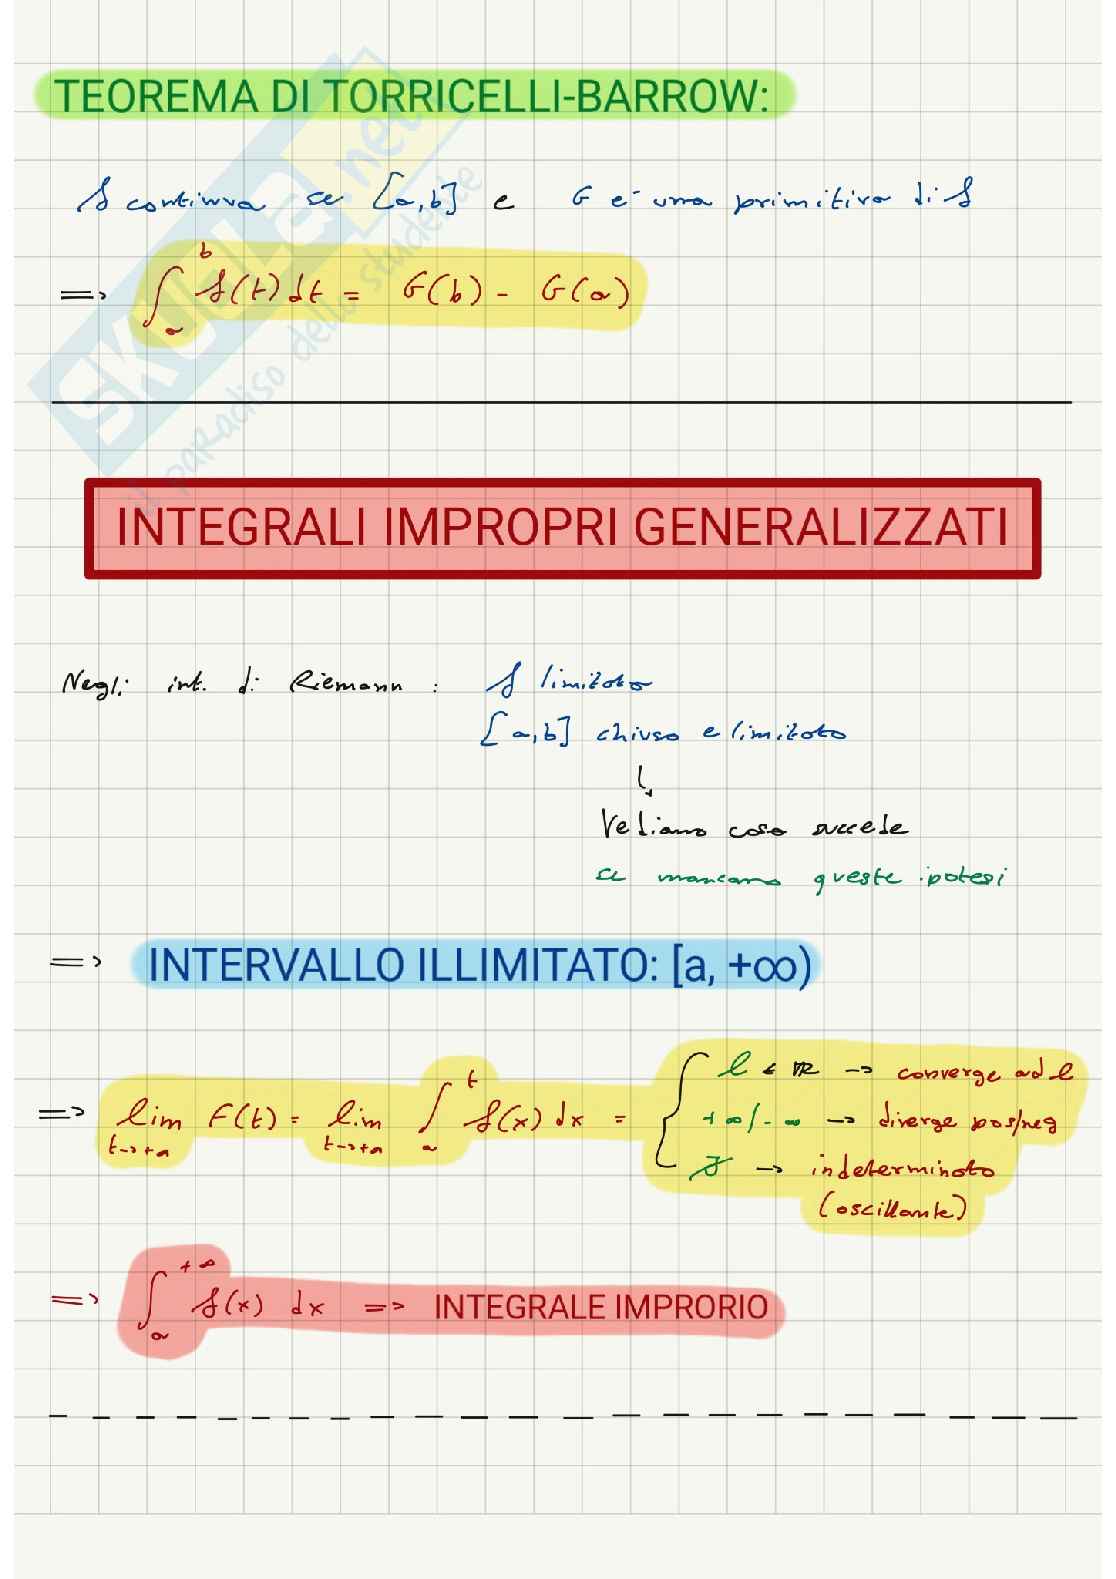 TEOREMA DI TORRICELLI-BARROW:
f continua se [a,b] e G è una primitiva di f
=> ∫_a^b f(t) dt = G(b) - G(a)
SKUOLA.net
il paradiso dello studente
INTEGRALI IMPROPRI GENERALIZZATI
Negli int. di Riemann : f limitata
[a,b] chiuso e limitato
↳
Vediamo cosa succede
se mancano queste ipotesi
=> INTERVALLO ILLIMITATO: [a, +∞)
=> lim t->+∞ F(t) = lim t->+∞ ∫_a^t f(x) dx = { l ∈ ℝ -> converge ad l
+∞/-∞ -> diverge pos/neg
∄ -> indeterminato
(oscillante)
=> ∫_a^+∞ f(x) dx => INTEGRALE IMPRORIO